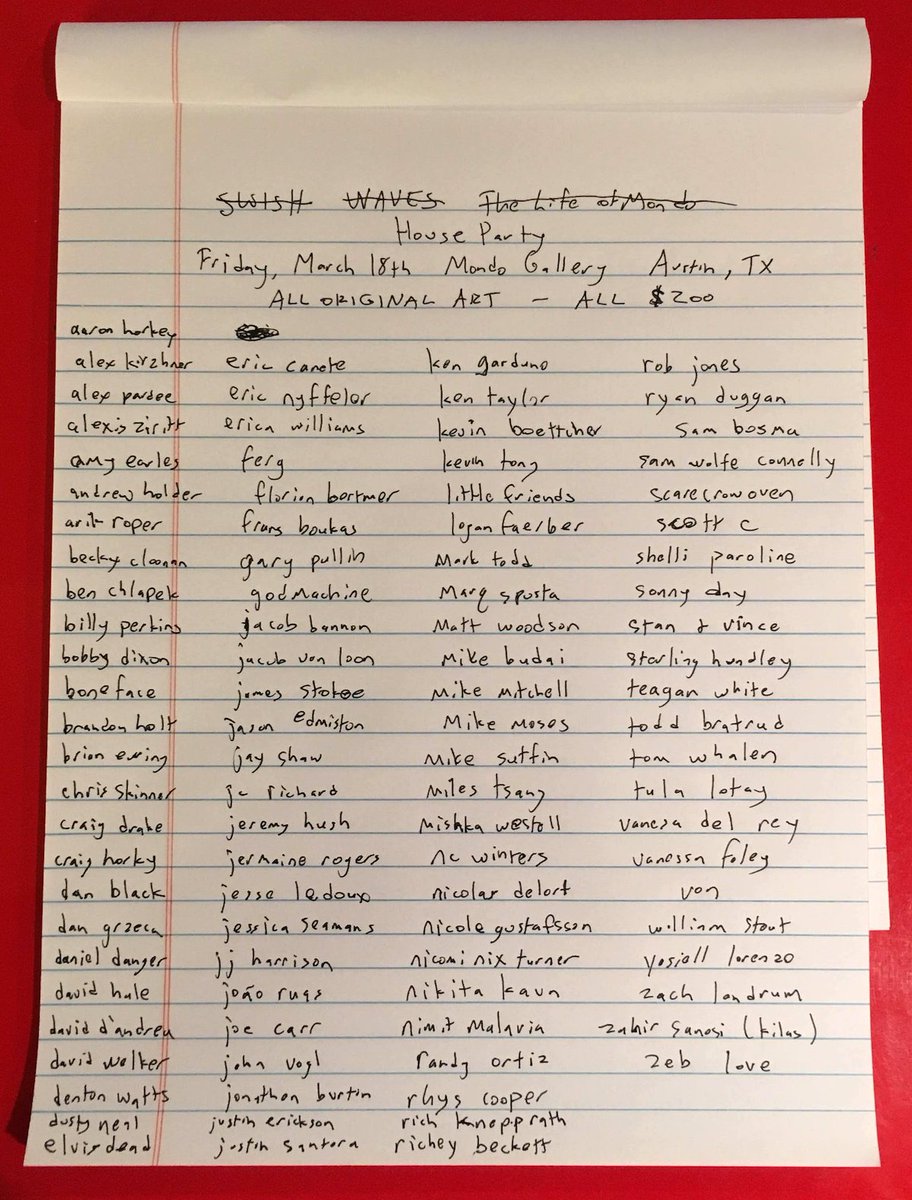 SWISH WAVES The Life of Mondo
House Party
Friday, March 18th Mondo Gallery Austin, TX
ALL ORIGINAL ART - ALL $200
aaron horkey
alex kirzhner eric canete ken garduno rob jones
alex pardee eric nyffeler ken taylor ryan duggan
alexis ziritt erica williams kevin boettcher sam bosma
amy earles ferg kevin tong sam wolfe connelly
andrew holder florian bertmer little friends scarecrowoven
arik roper frans boukas logan faerber scott c
becky cloonan gary pullin mark todd shelli paroline
ben chlapek godmachine Marq spusta sonny day
billy perkins jacob bannon Matt woodson stan & vince
bobby dixon jacub van loon Mike budai sterling hundley
boneface james stokoe Mike Mitchell teagan white
brandon holt jason edmiston Mike Moses todd bratrud
brian ewing jay shaw Mike suttin tom whalen
chris skinner jc richard Miles tsang tula lotay
craig drake jeremy hush Mishka westell vanesa del rey
craig horky jermaine rogers nc winters vanessa foley
dan black jesse ledoux nicolas delort von
dan grzeca jessica seamans nicole gustafsson william stout
daniel danger jj harrison nicomi nix turner yosiell lorenzo
david hale joão ruas nikita kaun zach landrum
david d'andrea joe carr nimit Malavia zahir sanosi (kilas)
david welker john vogl randy ortiz zeb love
denton watts jonathan burtin rhys cooper
dusty neal justin erickson rich knepprath
elvisdead justin santora richey beckett